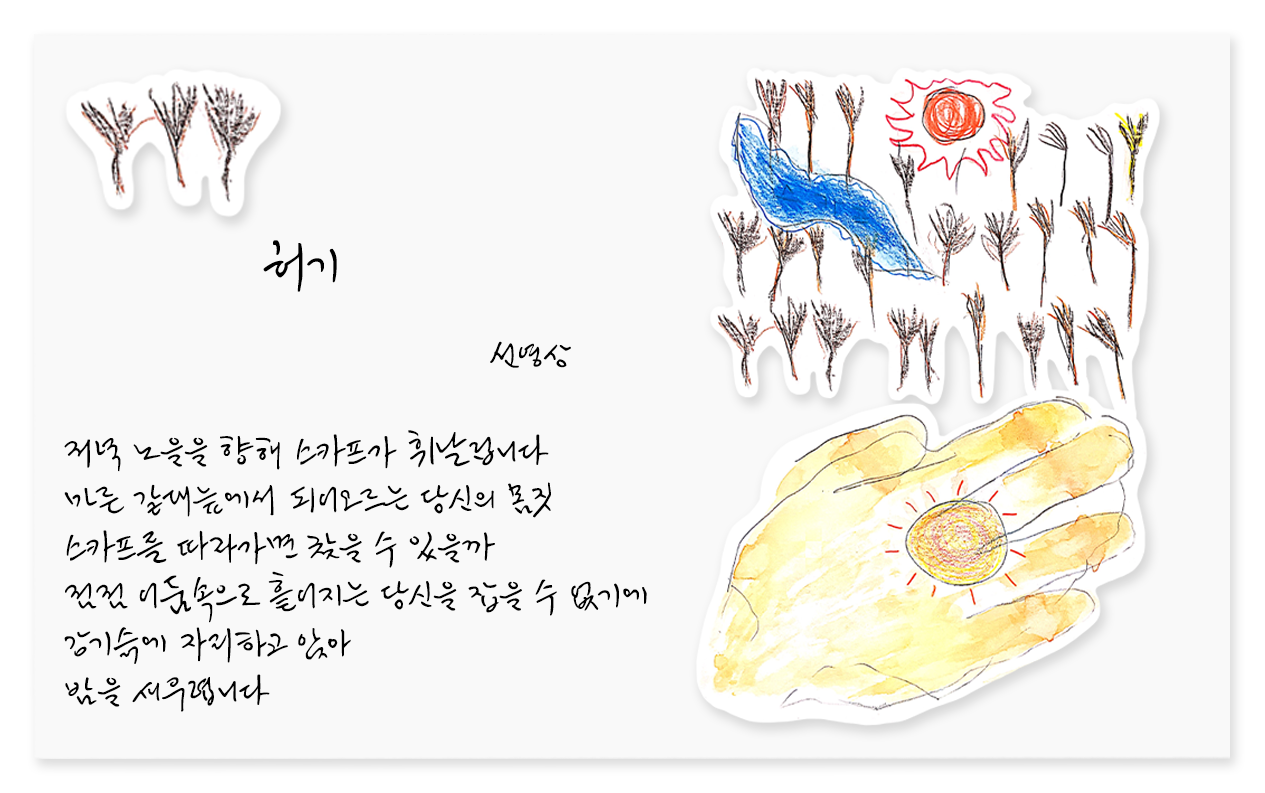 허기
선영상
저녁 노을을 향해 스카프가 휘날립니다
마른 갈대숲에서 되어오르는 당신의 몸짓
스카프를 따라가면 찾을 수 있을까
점점 어둠속으로 흩어지는 당신을 잡을 수 없기에
강기슭에 자리하고 앉아
밤을 새우렵니다